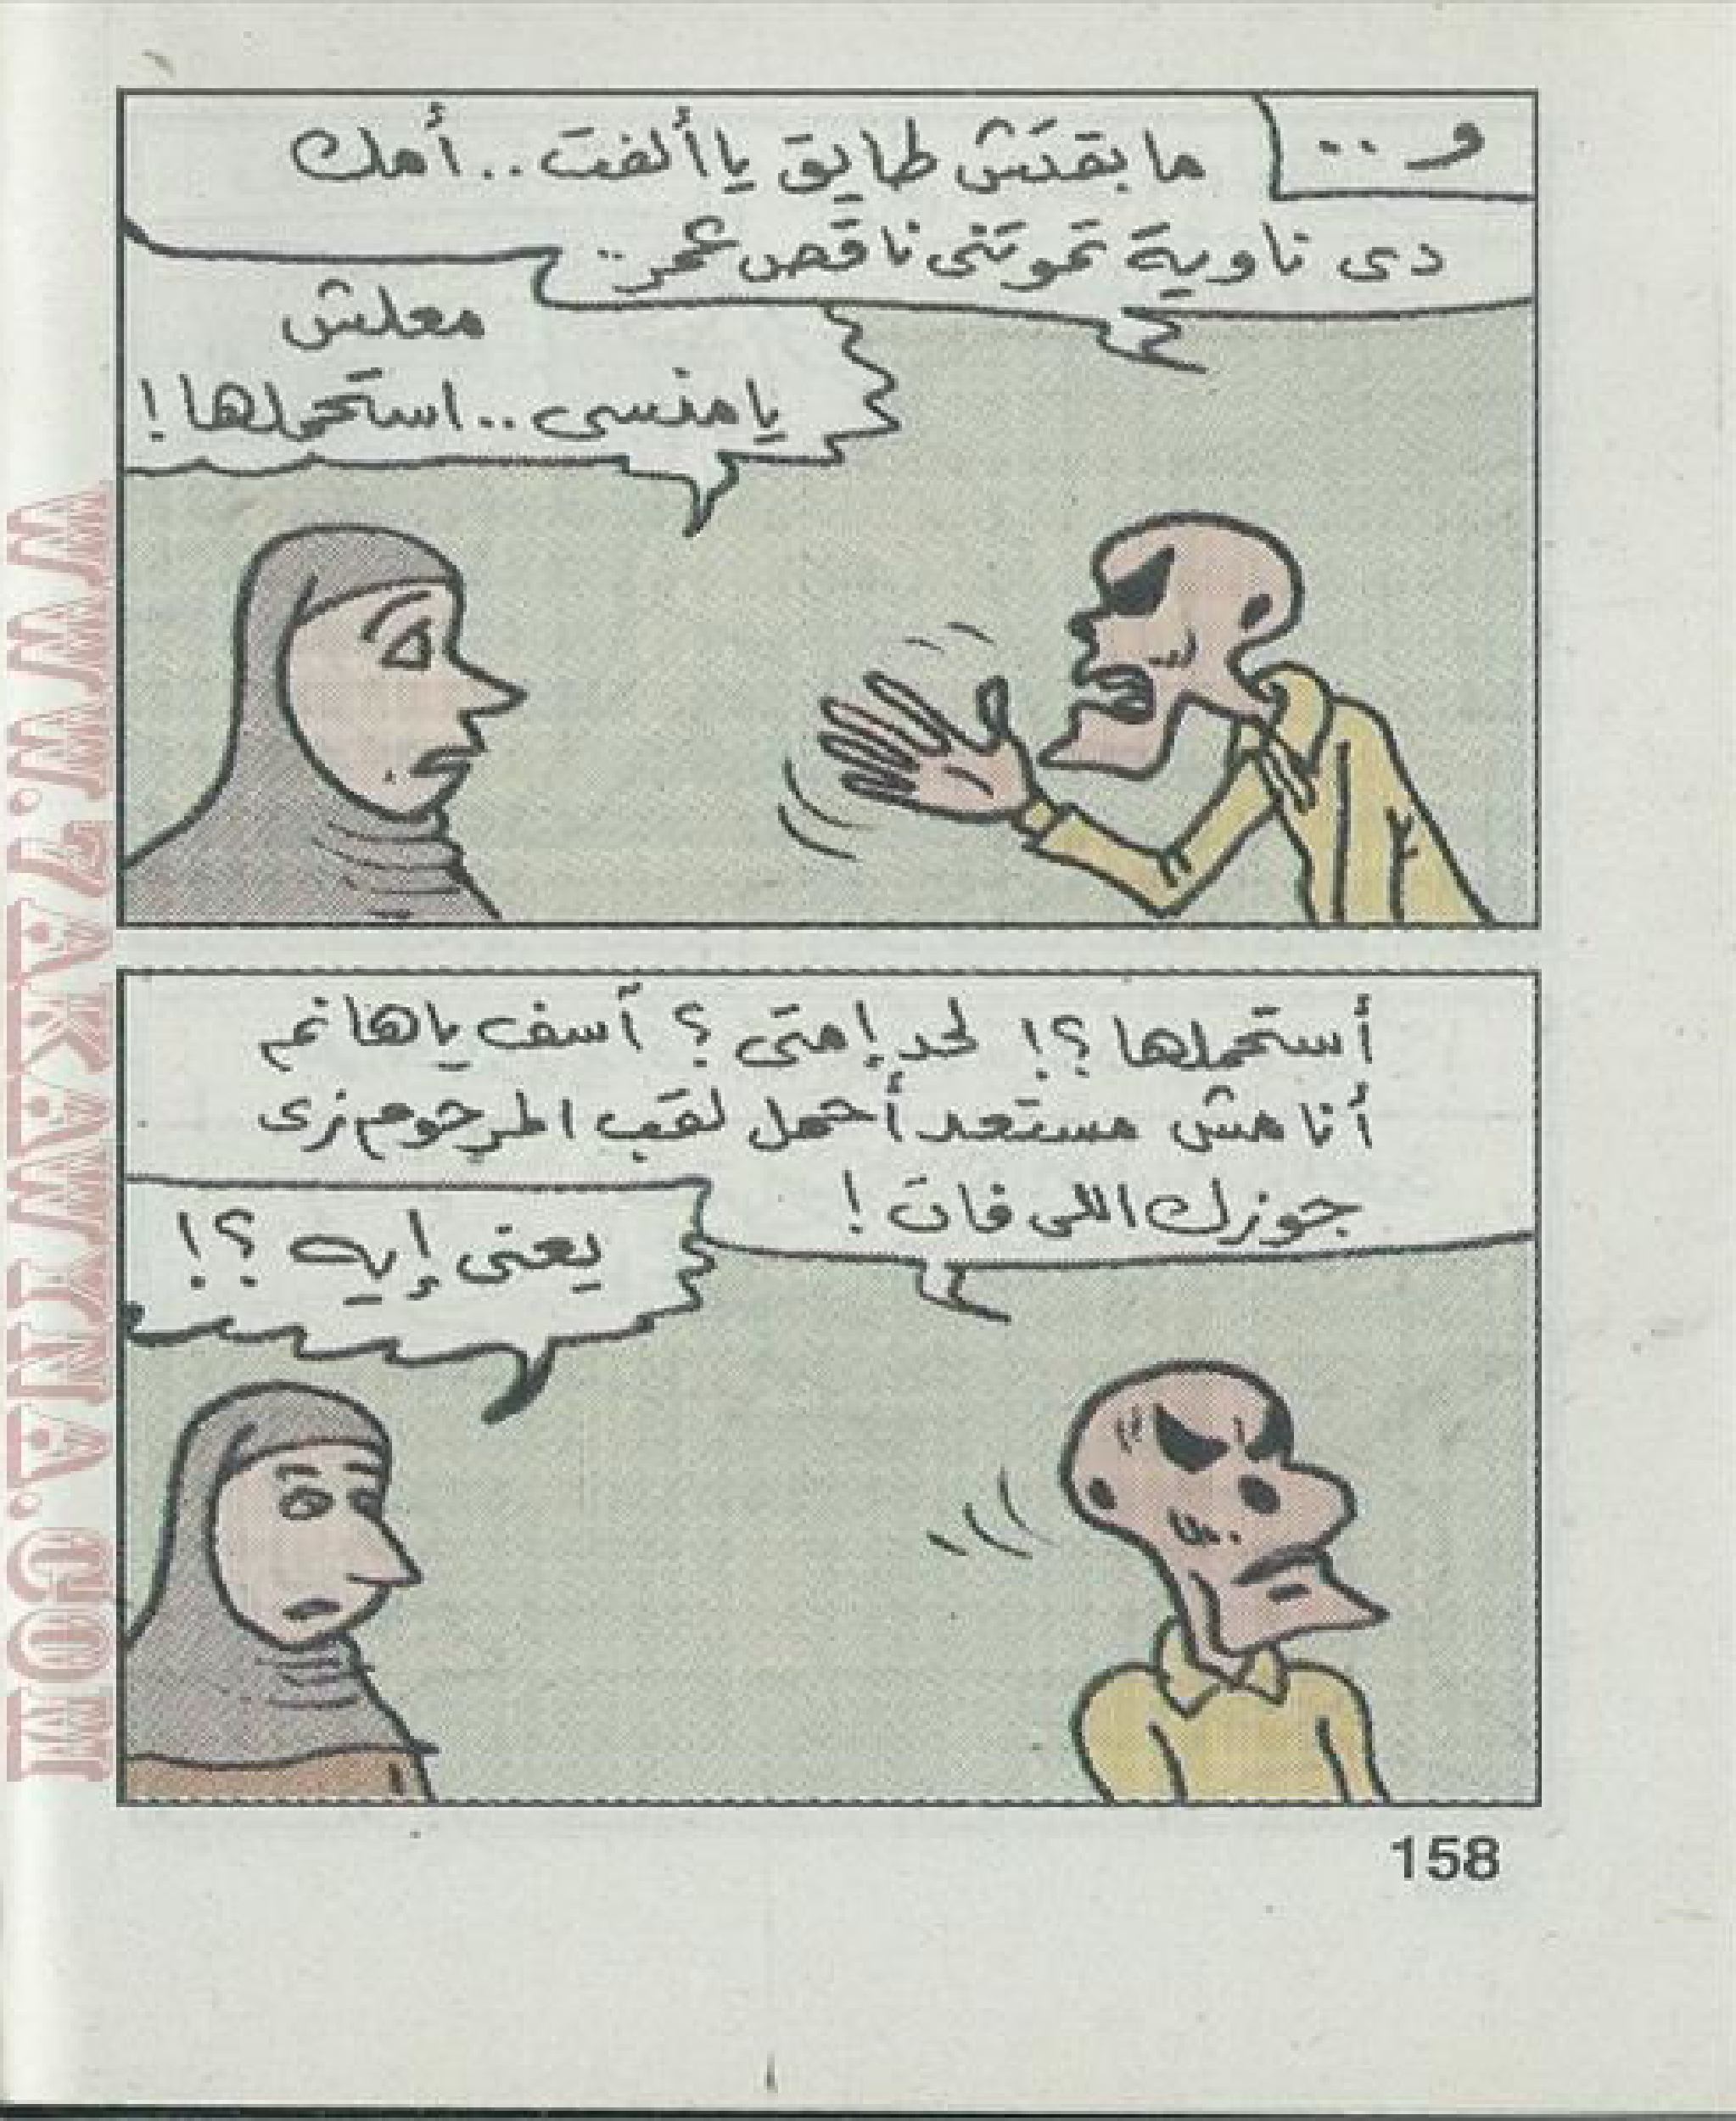 و ..
مابقتش طايق ياألفت .. أمك
دى ناوية تموتنى ناقص عمر ..
معلش
يا منسى .. استحملها !
أستحملها ؟! لحد إمتى ؟ آسف ياهانم
أنا مش مستعد أحمل لقب المرحوم زى
جوزك اللى فات !
يعنى إيه ؟!
158
WWW.ZAKAWKNA.COM